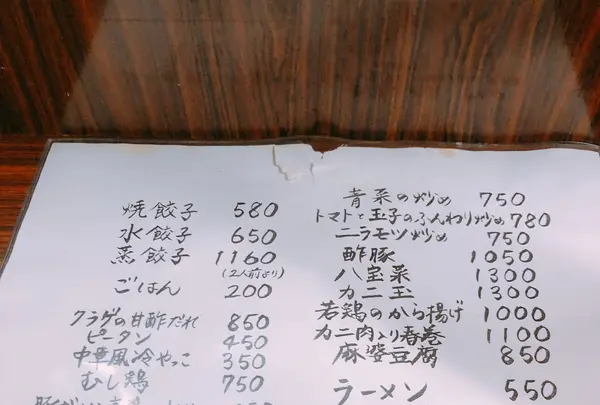 焼餃子 580
水餃子 650
蒸餃子 1160
(2人前より)
ごはん 200
クラゲの甘酢だれ 850
ピータン 450
中華風冷やっこ 350
むし鶏 750
青菜の炒め 750
トマトと玉子のふんわり炒め 780
ニラモツ炒め 750
酢豚 1050
八宝菜 1300
カニ玉 1300
若鶏のから揚げ 1000
カニ肉入り春巻 1100
麻婆豆腐 850
ラーメン 550